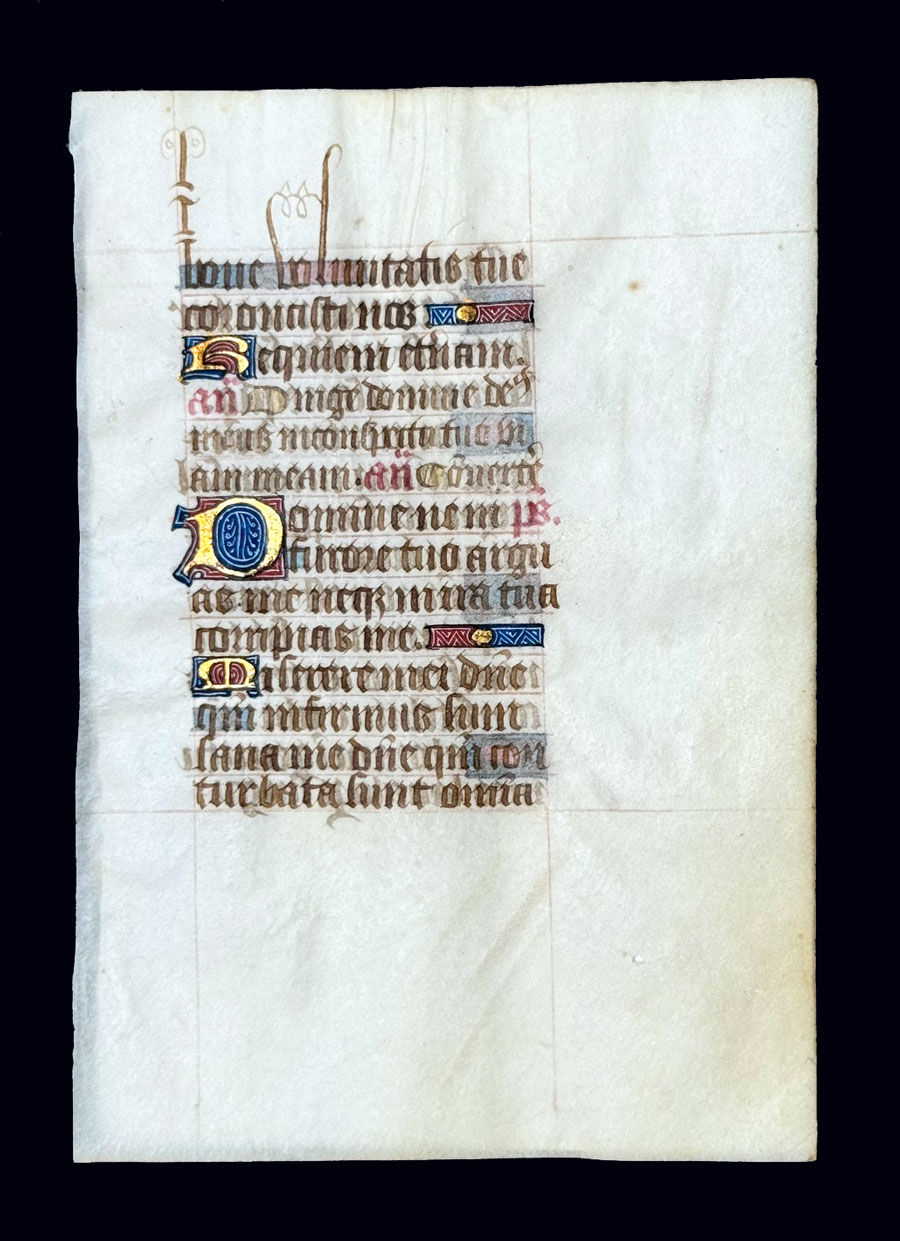 bone voluntatis tue
coronasti nos
Requiem etnam.
an̄ Dirige domine deꝰ
meus in conspectu tuo vi
am meam. an̄ Cōuertē
Domine ne in ps.
furore tuo argu
as me neqꝫ in ira tua
corripias me.
Miserere mei dn̄e
qm̄ infirmus sum
sana me dn̄e qm̄ con
turbata sunt omīa